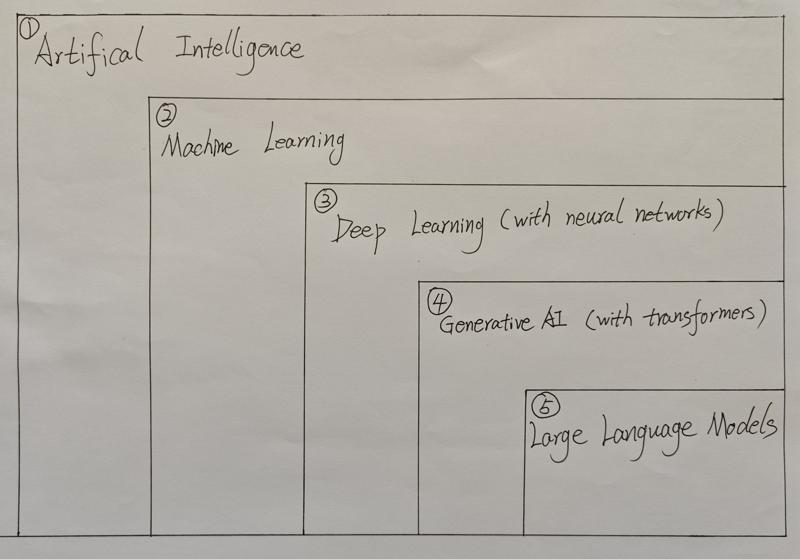 ① Artifical Intelligence
② Machine Learning
③ Deep Learning (with neural networks)
④ Generative AI (with transformers)
⑤ Large Language Models